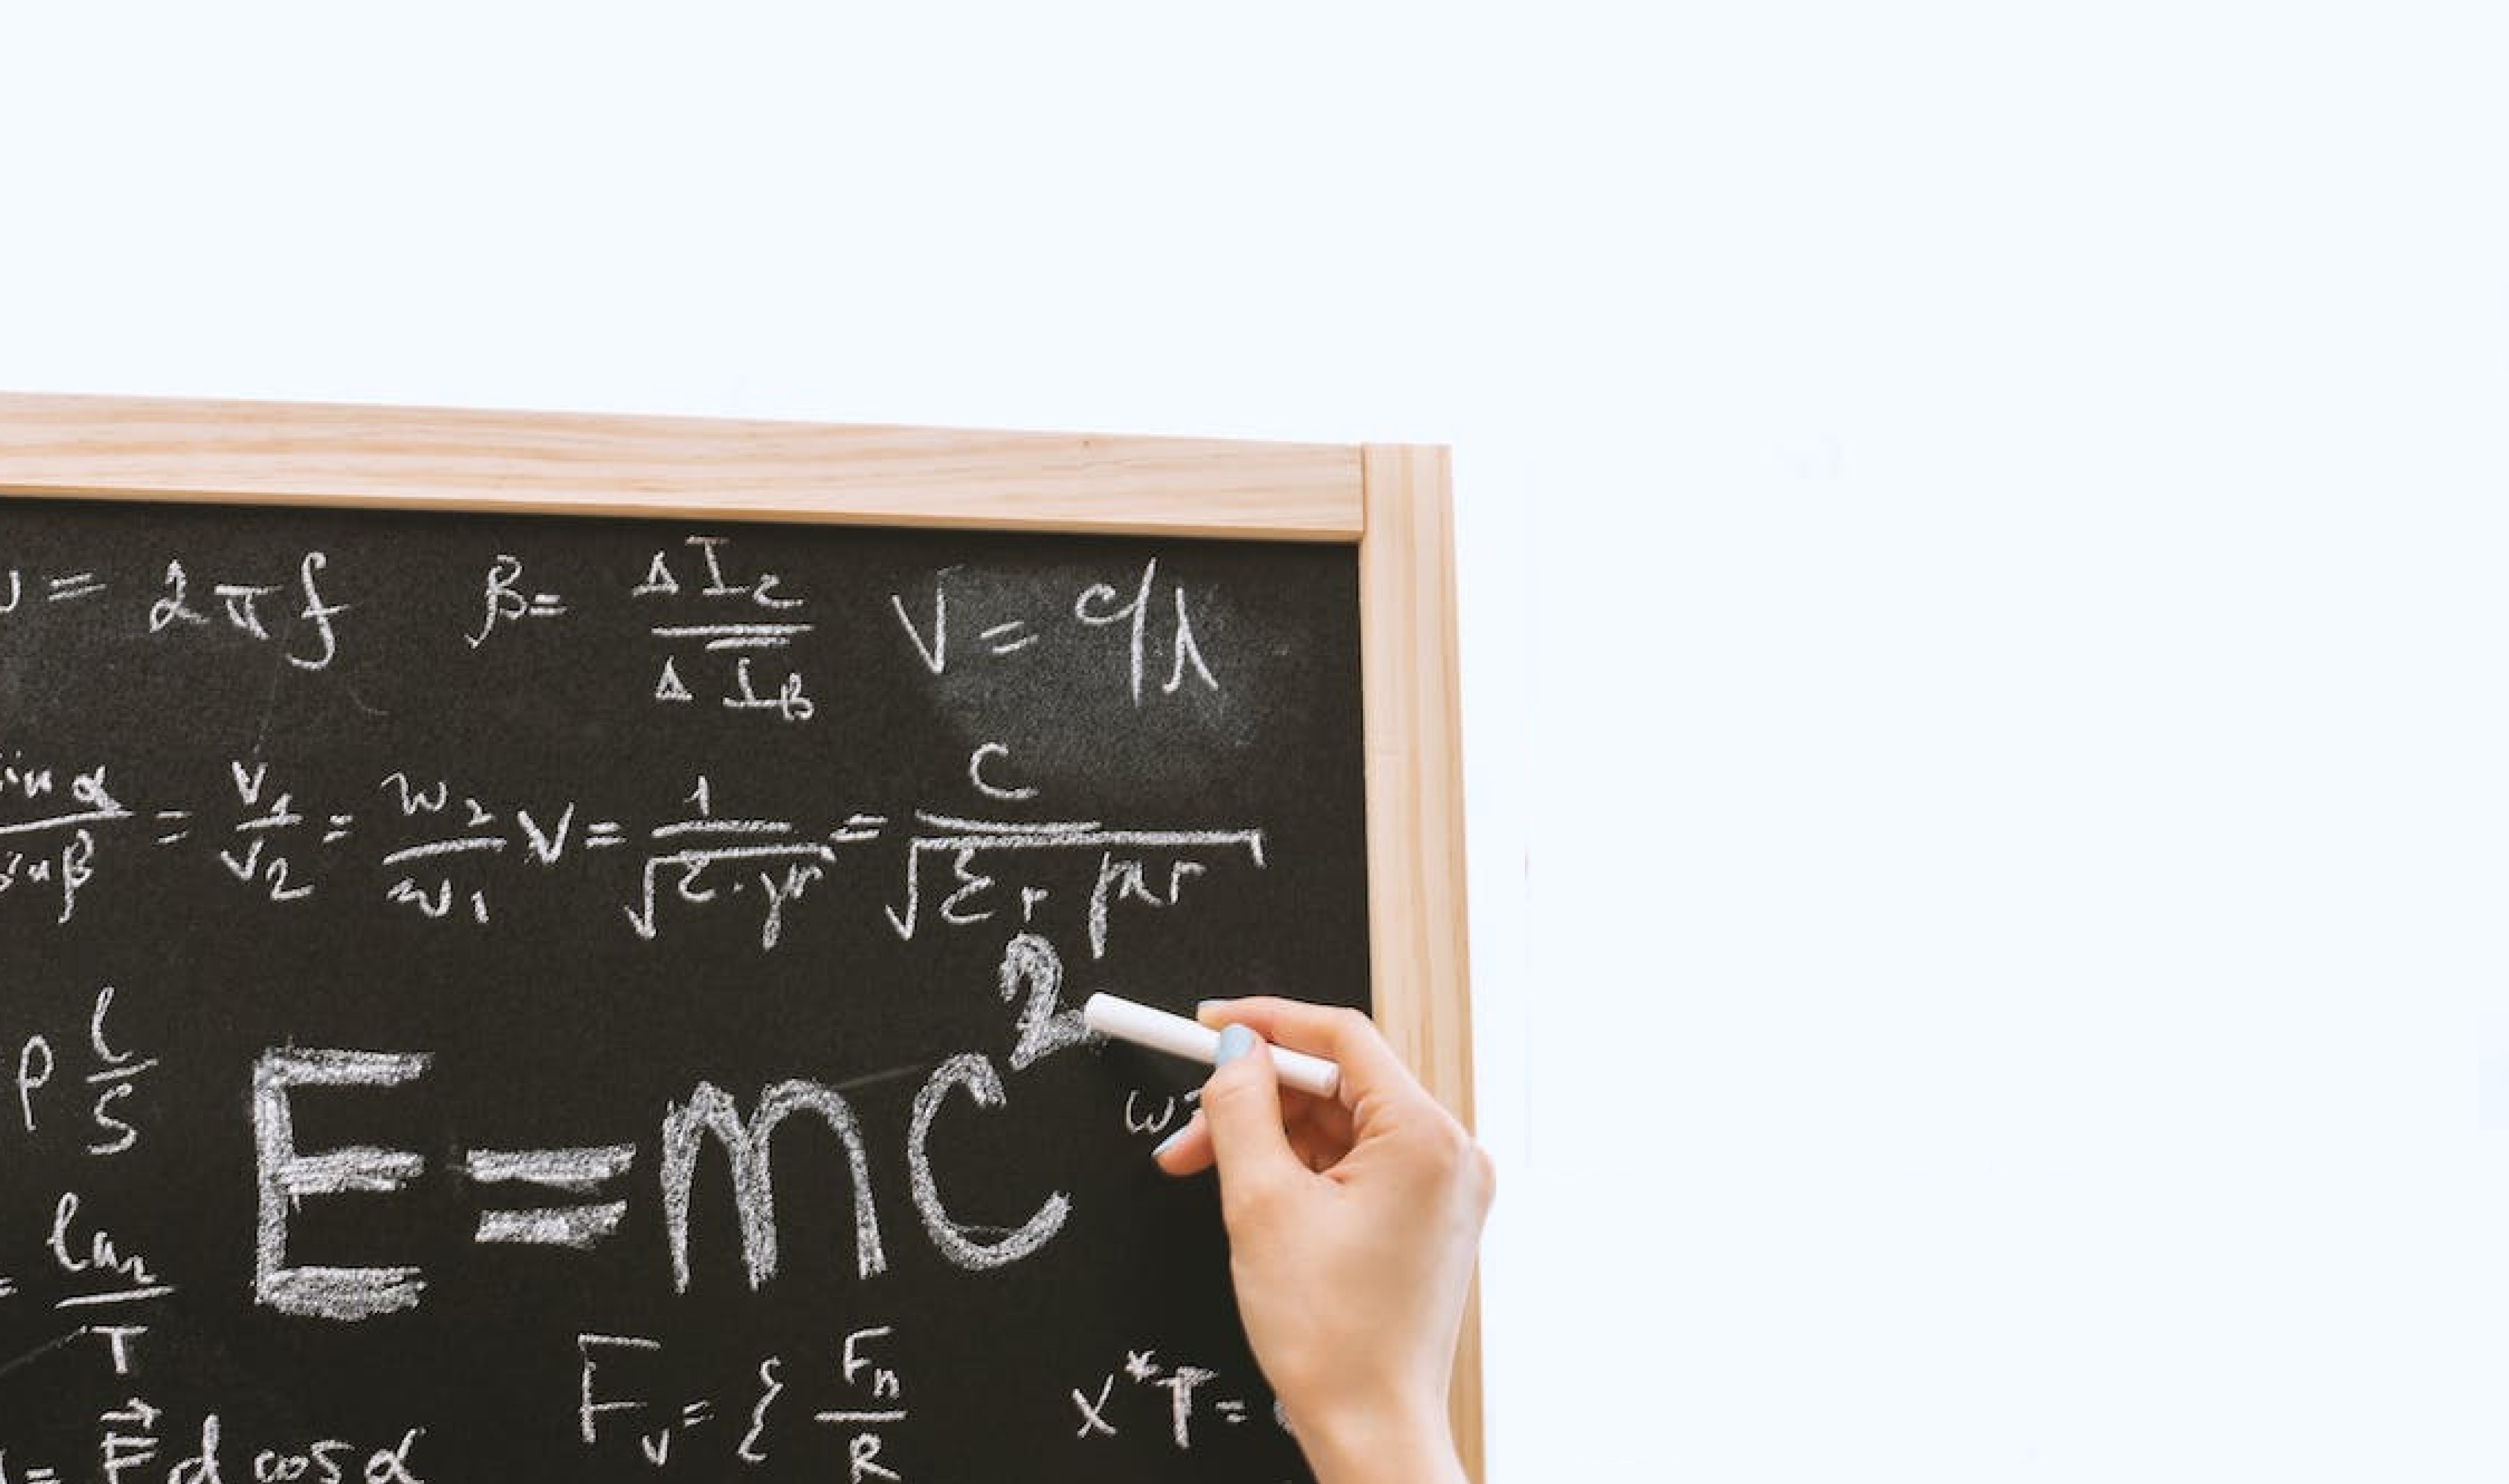 = 2πf β= ΔI_c/ΔI_B V = qλ
sin α/sin β = V_1/V_2 = w_2/w_1 V = 1/√(ε·μ) = C/√(ε_r μr)
ρ l/S
E=mc²
ω=
F_v = ξ F_n/R
X*T=
= F⃗ d cos α